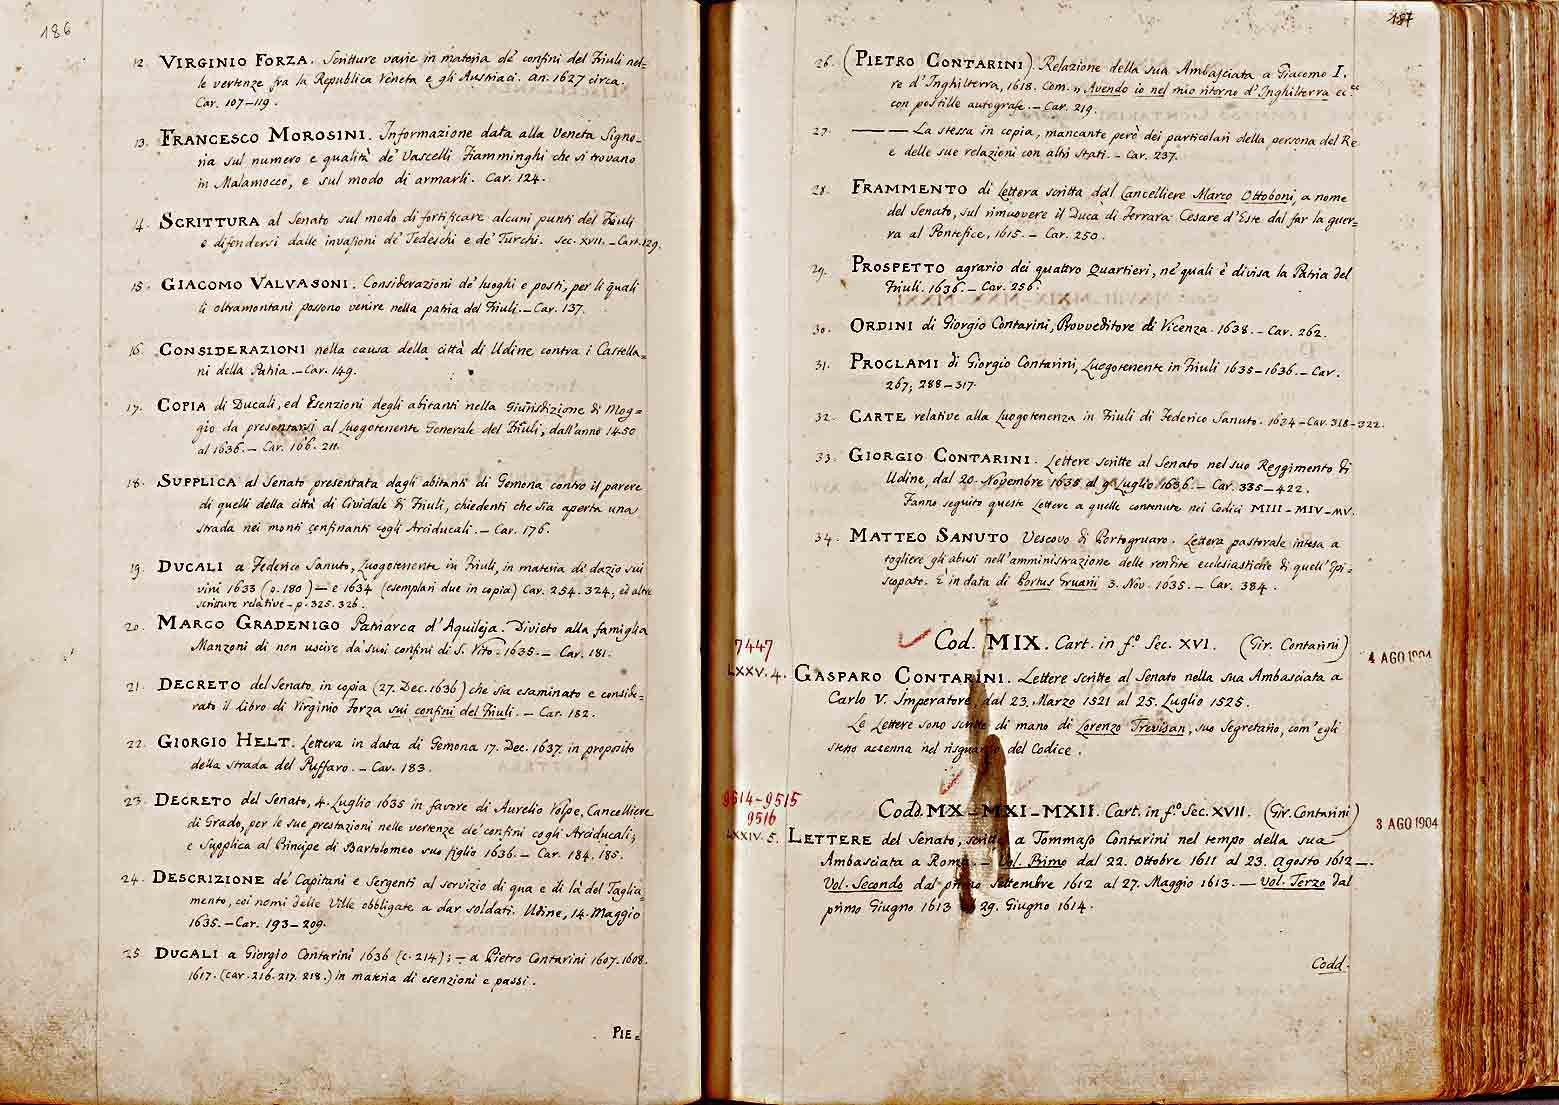 186
12. VIRGINIO FORZA. Scritture varie in materia de' confini del Friuli nel=
le vertenze fra la Republica Veneta e gli Austriaci. an. 1627 circa.
Car. 107–119.
13. FRANCESCO MOROSINI. Informazione data alla Veneta Signo-
ria sul numero e qualità de' Vascelli Fiamminghi che si trovano
in Malamocco, e sul modo di armarli. Car. 124.
14. SCRITTURA al Senato sul modo di fortificare alcuni punti del Friuli
e difendersi dalle invasioni de' Tedeschi e de' Turchi. Sec. XVII. – Car. 129.
15. GIACOMO VALVASONI. Considerazioni de' luoghi e posti, per li quali
li oltramontani possono venire nella patria del Friuli. – Car. 137.
16. CONSIDERAZIONI nella causa della città di Udine contra i Castella=
ni della Patria. – Car. 149.
17. COPIA di Ducali, ed Esenzioni degli abitanti nella Giurisdizione di Mog=
gio da presentarsi al Luogotenente Generale del Friuli, dall'anno 1450
al 1636. – Car. 166. 211.
18. SUPPLICA al Senato presentata dagli abitanti di Gemona contro il parere
di quelli della città di Cividale di Friuli, chiedenti che sia aperta una
strada nei monti confinanti cogli Arciducali. – Car. 176.
19. DUCALI a Federico Sanuto, Luogotenente in Friuli, in materia di dazio sui
vini 1633 (p. 180) — e 1634 (esemplari due in copia) Car. 254. 324, ed altre
scritture relative – p. 325. 326.
20. MARCO GRADENIGO Patriarca d'Aquileja. Divieto alla famiglia
Manzoni di non uscire da' suoi confini di S. Vito. 1635. – Car. 181.
21. DECRETO del Senato in copia (27. Dec. 1636) che sia esaminato e conside=
rato il libro di Virginio Forza sui confini del Friuli. – Car. 182.
22. GIORGIO HELT. Lettera in data di Gemona 17. Dec. 1637. in proposito
della strada del Puffaro. – Car. 183.
23. DECRETO del Senato, 4. Luglio 1635 in favore di Aurelio Volpe, Cancelliere
di Grado, per le sue prestazioni nelle vertenze de' confini cogli Arciducali;
e Supplica al Principe di Bartolomeo suo figlio 1636. – Car. 184, 185.
24. DESCRIZIONE de' Capitani e Sergenti al servizio di qua e di là del Taglia-
mento, coi nomi delle Ville obbligate a dar soldati. Udine, 14. Maggio
1635. – Car. 193–209.
25. DUCALI a Giorgio Contarini 1636 (c. 214); – a Pietro Contarini 1607. 1608.
1617. (car. 216. 217. 218.) in materia di esenzioni e passi.
PIE=
187
26. (PIETRO CONTARINI). Relazione della sua Ambasciata a Giacomo I.
re d'Inghilterra, 1618. Com. „ Avendo io nel mio ritorno d'Inghilterra ecc
con postille autografe. – Car. 219.
27. ——— La stessa in copia, mancante però dei particolari della persona del Re
e delle sue relazioni con altri stati. – Car. 237.
28. FRAMMENTO di lettera scritta dal Cancelliere Marco Ottoboni, a nome
del Senato, sul rimuovere il Duca di Ferrara Cesare d'Este dal far la guer-
ra al Pontefice, 1615. – Car. 250.
29. PROSPETTO agrario dei quattro Quartieri, ne' quali è divisa la Patria del
Friuli. 1636. – Car. 256.
30. ORDINI di Giorgio Contarini, Provveditore di Vicenza. 1638. – Car. 262.
31. PROCLAMI di Giorgio Contarini, Luogotenente in Friuli 1635–1636. – Car.
267; 288–317.
32. CARTE relative alla Luogotenenza in Friuli di Federico Sanuto. 1634 – Car. 318–322.
33. GIORGIO CONTARINI. Lettere scritte al Senato nel suo Reggimento di
Udine, dal 20. Novembre 1635 al 9. Luglio 1636. – Car. 335–422.
Fanno seguito queste Lettere a quelle contenute nei Codici MIII – MIV – MV.
34. MATTEO SANUTO Vescovo di Portogruaro. Lettera pastorale intesa a
togliere gli abusi nell'amministrazione delle rendite ecclesiastiche di quell' Epi-
scopato. È in data di Portus Gruarii 3. Nov. 1635. – Car. 384.
7447
Cod. MIX. Cart. in f.º Sec. XVI. (Gir. Contarini)
4 AGO 1904
LXXV. 4. GASPARO CONTARINI. Lettere scritte al Senato nella sua Ambasciata a
Carlo V. Imperatore, dal 23. Marzo 1521 al 25. Luglio 1525.
Le Lettere sono scritte di mano di Lorenzo Trevisan, suo Segretario, com' egli
stesso accenna nel risguardo del Codice.
9514–9515
9516
Codd. MX – MXI – MXII. Cart. in f.º Sec. XVII. (Gir. Contarini)
3 AGO 1904
LXXIV. 5. LETTERE del Senato, scritte a Tommaso Contarini nel tempo della sua
Ambasciata a Roma. – Vol. Primo dal 22. Ottobre 1611 al 23. Agosto 1612 –.
Vol. Secondo dal primo Settembre 1612 al 27. Maggio 1613. — Vol. Terzo dal
primo Giugno 1613 29. Giugno 1614.
Codd.